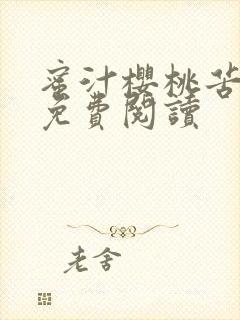 蜜汁櫻桃苦
免費閱讀
老舍